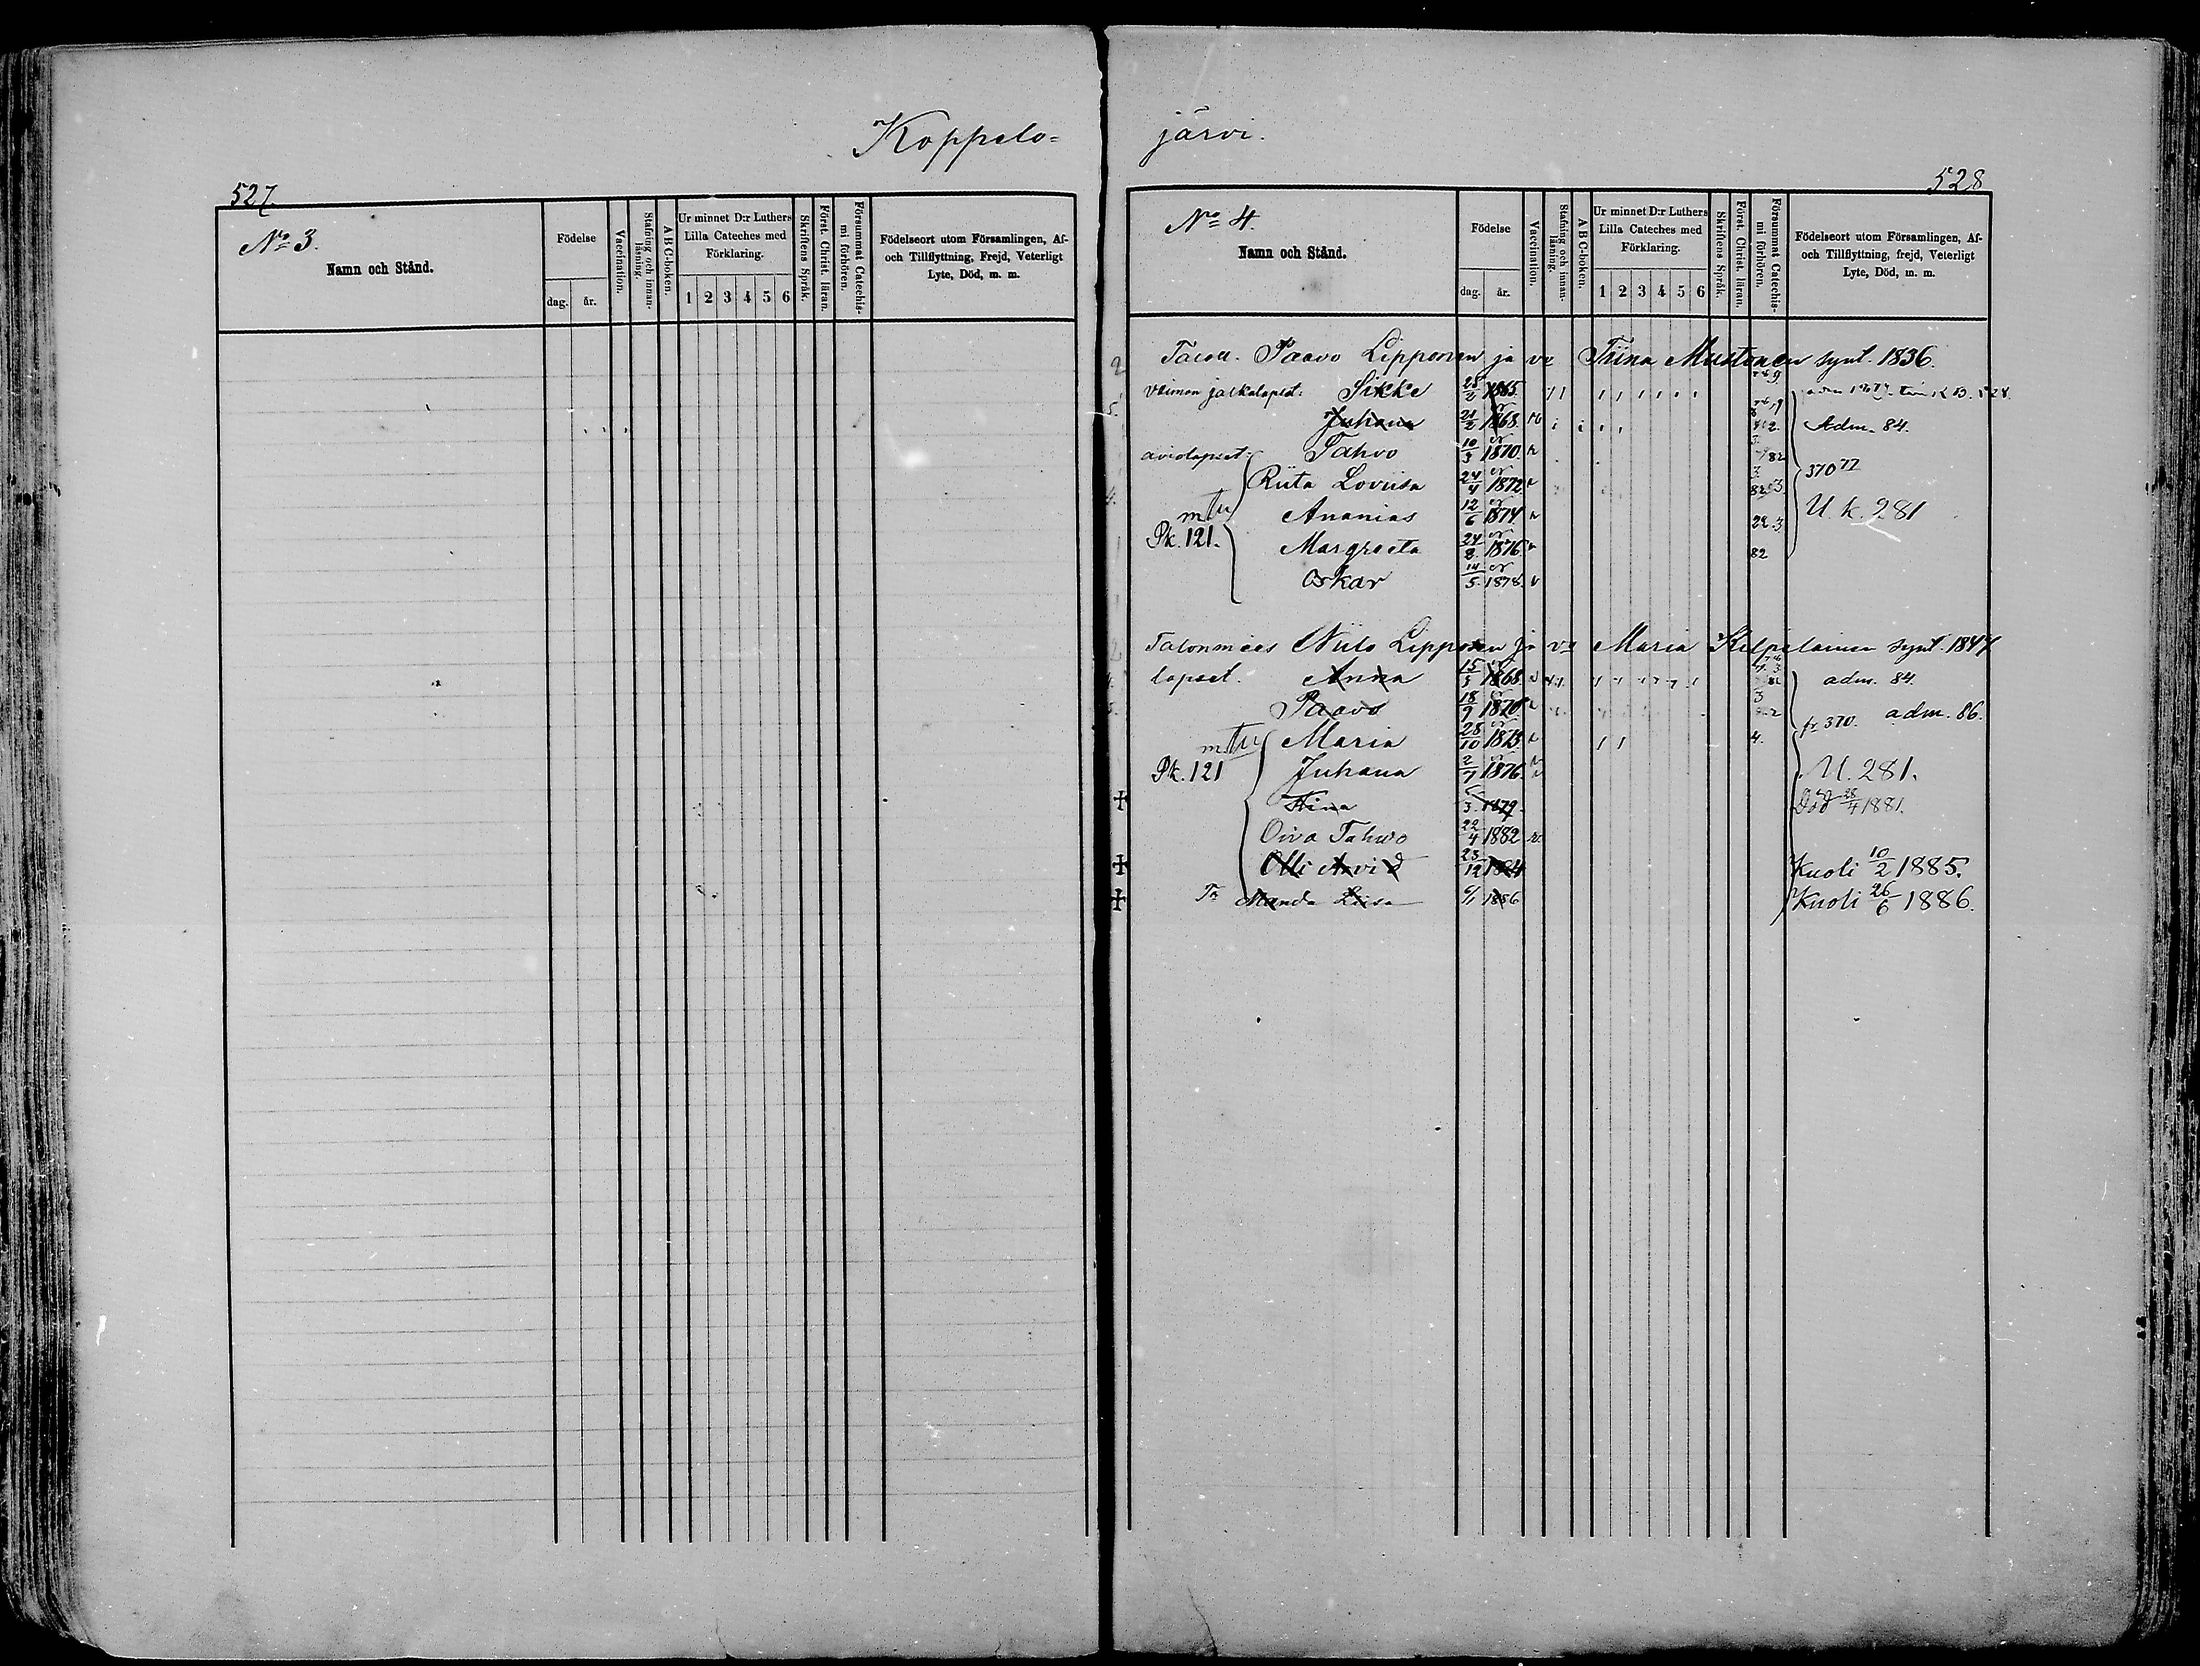 Koppelo=
järvi.
527.
528
No 3.
Namn och Stånd.
Födelse
dag. år.
Vaccination.
Stafning och innan-läsning.
ABC-boken.
Ur minnet D:r Luthers
Lilla Cateches med
Förklaring.
1 2 3 4 5 6
Skriftens Språk.
Först. Christ. läran.
Försummat Catechis-mi förhören.
Födelseort utom Församlingen, Af-
och Tillflyttning, Frejd, Veterligt
Lyte, Död, m. m.
No 4.
Namn och Stånd.
Födelse
dag. år.
Vaccination.
Stafning och innan-läsning.
ABC-boken.
Ur minnet D:r Luthers
Lilla Cateches med
Förklaring.
1 2 3 4 5 6
Skriftens Språk.
Först. Christ. läran.
Försummat Catechis-mi förhören.
Födelseort utom Församlingen, Af-
och Tillflyttning, frejd, Veterligt
Lyte, Död, m. m.
Paavo Lipponen ja vo Tiina Mustonen synt. 1836.
Sikke 28/2 1865.
Juhana 21/2 1868. Adm. 84.
aviolapset: Tahvo 10/3 1870. 370 77
Riita Loviisa 24/4 1872.
Ananias 12/6 1874. U. k. 281
Pk. 121. Margreeta 24/8 1876.
Oskar 14/5 1878.
Talonmies Niilo Lipponen ja vo Maria Kilpeläinen synt. 1847
lapset. Anna 15/3 1868. adm. 84.
Paavo 18/9 1870 fr 370. adm. 86.
Maria 28/10 1873.
Pk. 121 Juhana 2/7 1876. U. 281.
Tiina 3 1879. Död 28/4 1881.
Oiva Tahvo 22/4 1882
Olli Arvid 23/12 1884 Kuoli 10/2 1885.
Manda Liisa 6/1 1886 Kuoli 26/6 1886.